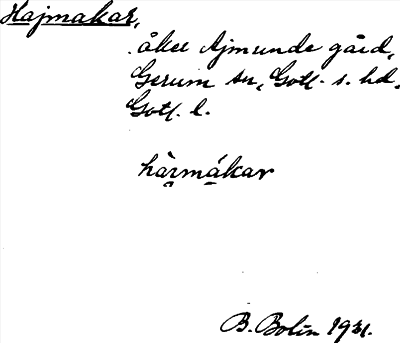 Hajmakar,
åker Ajmunde gård,
Gerum sn, Gotl. s. hd.
Gotl. l.
hàrmákar
B. Bolin 1931.